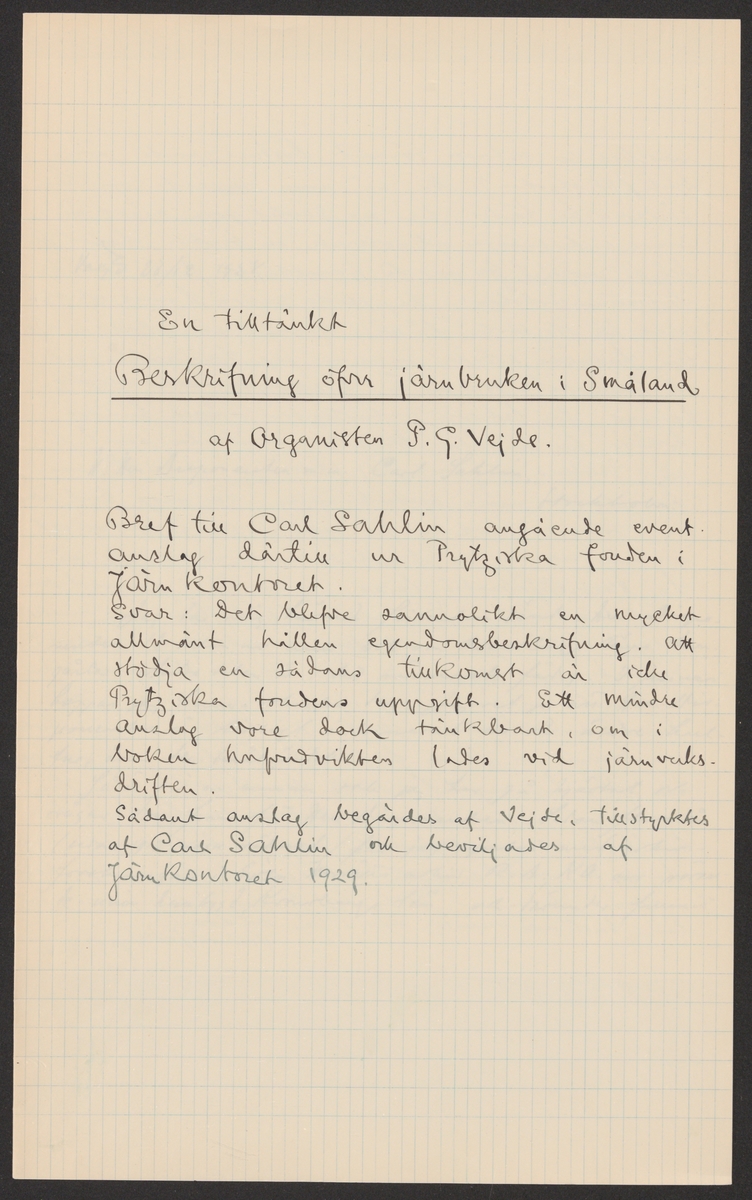 En tilltänkt
Beskrifning öfver järnbruken i Småland
af Organisten P. G. Vejde.
Bref till Carl Sahlin angående event.
anslag därtill ur Prytziska fonden i
Järnkontoret.
Svar: Det blefve sannolikt en mycket
allmänt hållen egendomsbeskrifning. Att
stödja en sådans tillkomst är icke
Prytziska fondens uppgift. Ett mindre
anslag vore dock tänkbart, om i
boken hufvudvikten lades vid järnverks-
driften.
Sådant anslag begärdes af Vejde, tillstyrktes
af Carl Sahlin och beviljades af
Järnkontoret 1929.